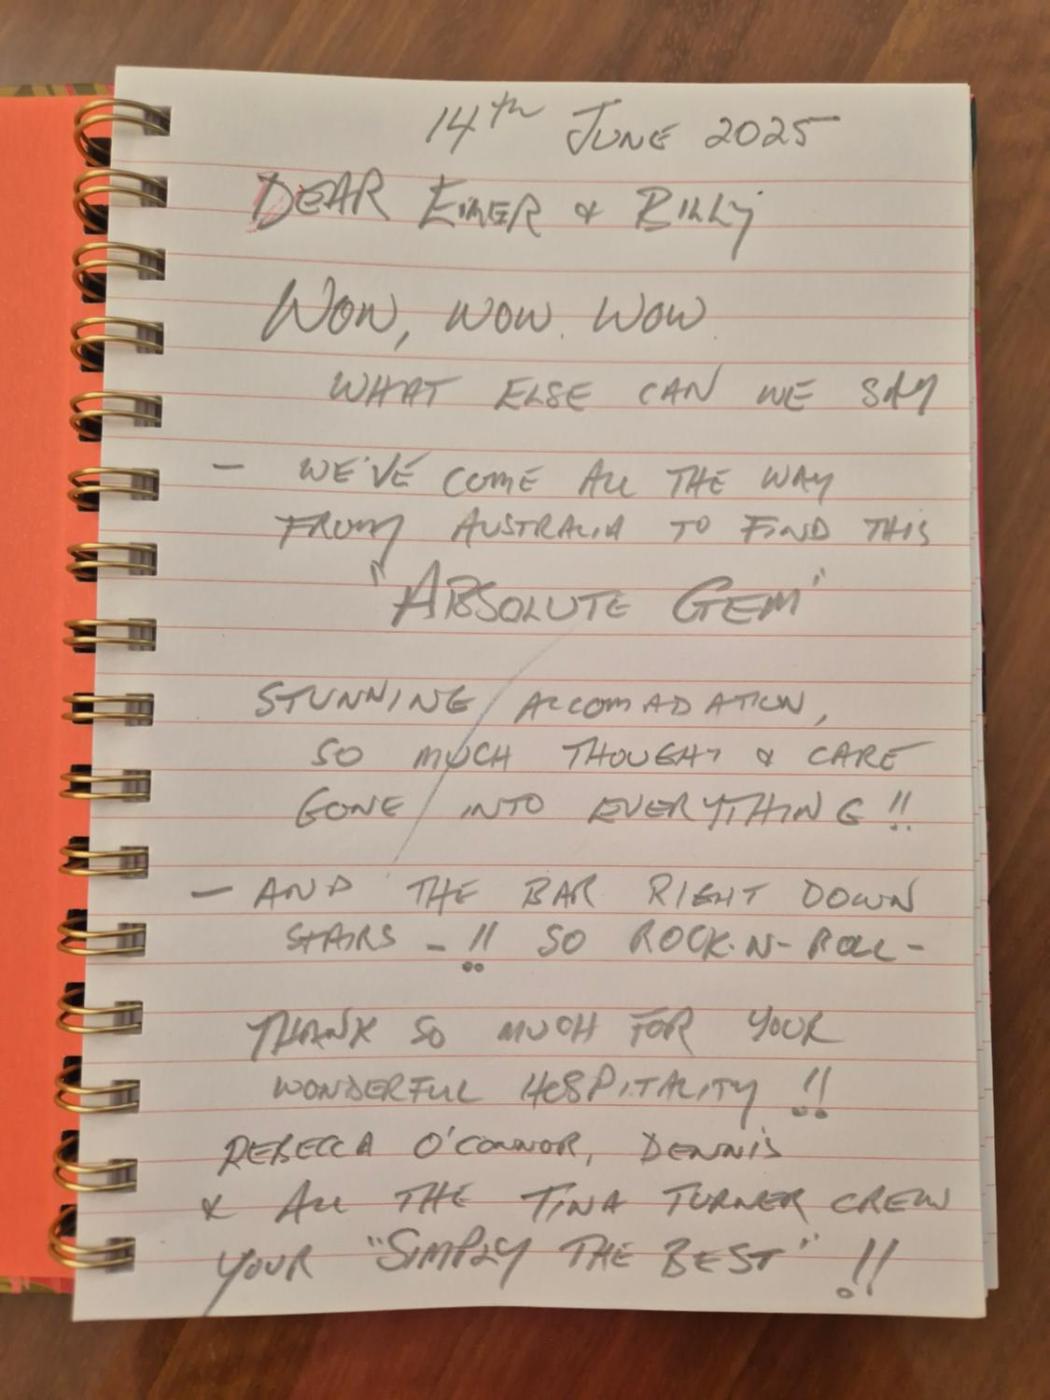 14th JUNE 2025
DEAR EIMER & BILLY
WOW, WOW. WOW
WHAT ELSE CAN WE SAY
- WE'VE COME ALL THE WAY
FROM AUSTRALIA TO FIND THIS
"ABSOLUTE GEM"
STUNNING ACCOMADATION,
SO MUCH THOUGHT & CARE
GONE INTO EVERYTHING!!
- AND THE BAR RIGHT DOWN
STAIRS -!! SO ROCK-N-ROLL-
THANK SO MUCH FOR YOUR
WONDERFUL HOSPITALITY!!
REBECCA O'CONNOR, DENNIS
& ALL THE TINA TURNER CREW
YOUR "SIMPLY THE BEST"!!